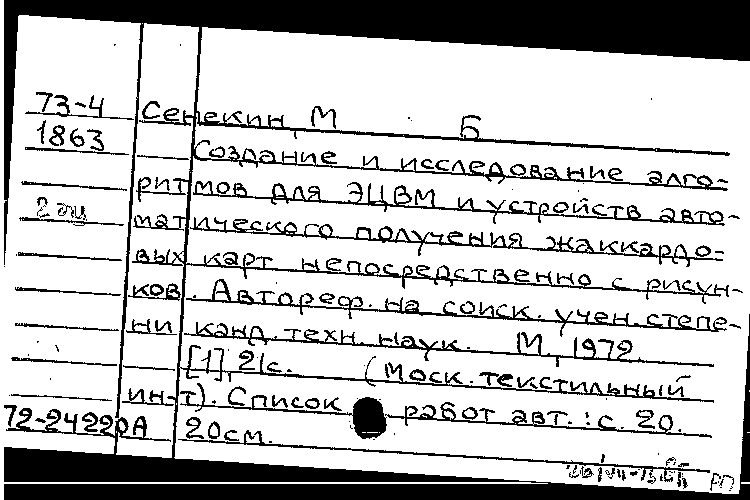 73-4 Сенекин, М Б
1863 Создание и исследование алго-
ритмов для ЭЦВМ и устройств авто-
2 эц матического получения жаккардо-
вых карт непосредственно с рисун-
ков. Автореф. на соиск. учен. степе-
ни канд. техн. наук. М., 1972.
[1], 21с. (Моск. текстильный
ин-т). Список работ авт.: с. 20.
72-24220А 20см.
РП